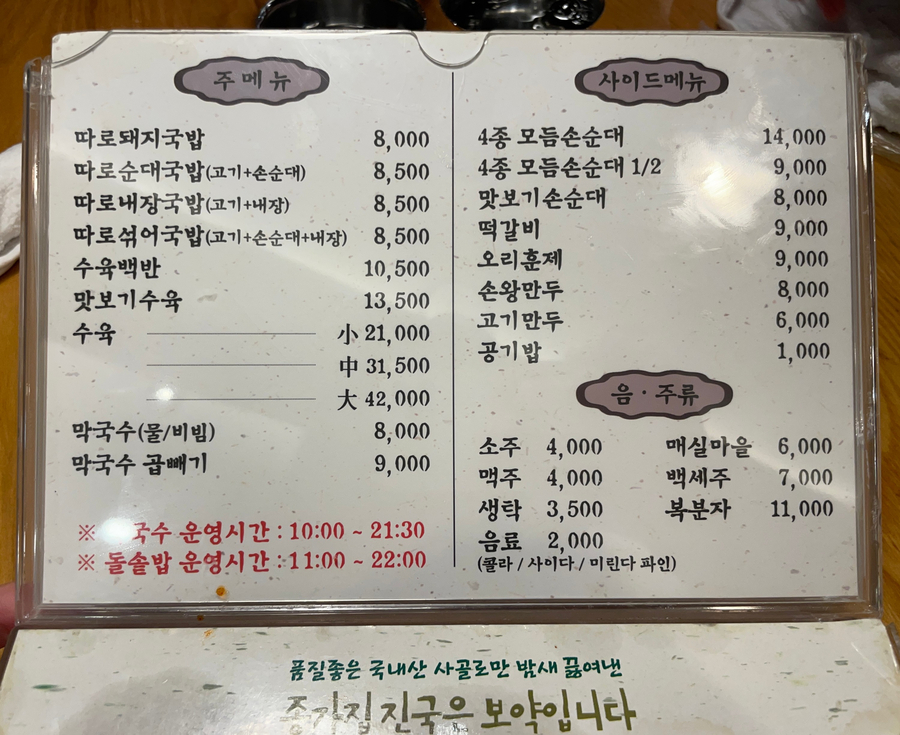 주메뉴
따로돼지국밥 8,000
따로순대국밥(고기+손순대) 8,500
따로내장국밥(고기+내장) 8,500
따로섞어국밥(고기+손순대+내장) 8,500
수육백반 10,500
맛보기수육 13,500
수육 小 21,000
中 31,500
大 42,000
막국수(물/비빔) 8,000
막국수 곱빼기 9,000
※ 국수 운영시간 : 10:00 ~ 21:30
※ 돌솥밥 운영시간 : 11:00 ~ 22:00
사이드메뉴
4종 모듬손순대 14,000
4종 모듬손순대 1/2 9,000
맛보기손순대 8,000
떡갈비 9,000
오리훈제 9,000
손왕만두 8,000
고기만두 6,000
공기밥 1,000
음·주류
소주 4,000 매실마을 6,000
맥주 4,000 백세주 7,000
생탁 3,500 복분자 11,000
음료 2,000
(콜라 / 사이다 / 미린다 파인)
품질좋은 국내산 사골로만 밤새 끓여낸
종가집 진국은 보약입니다